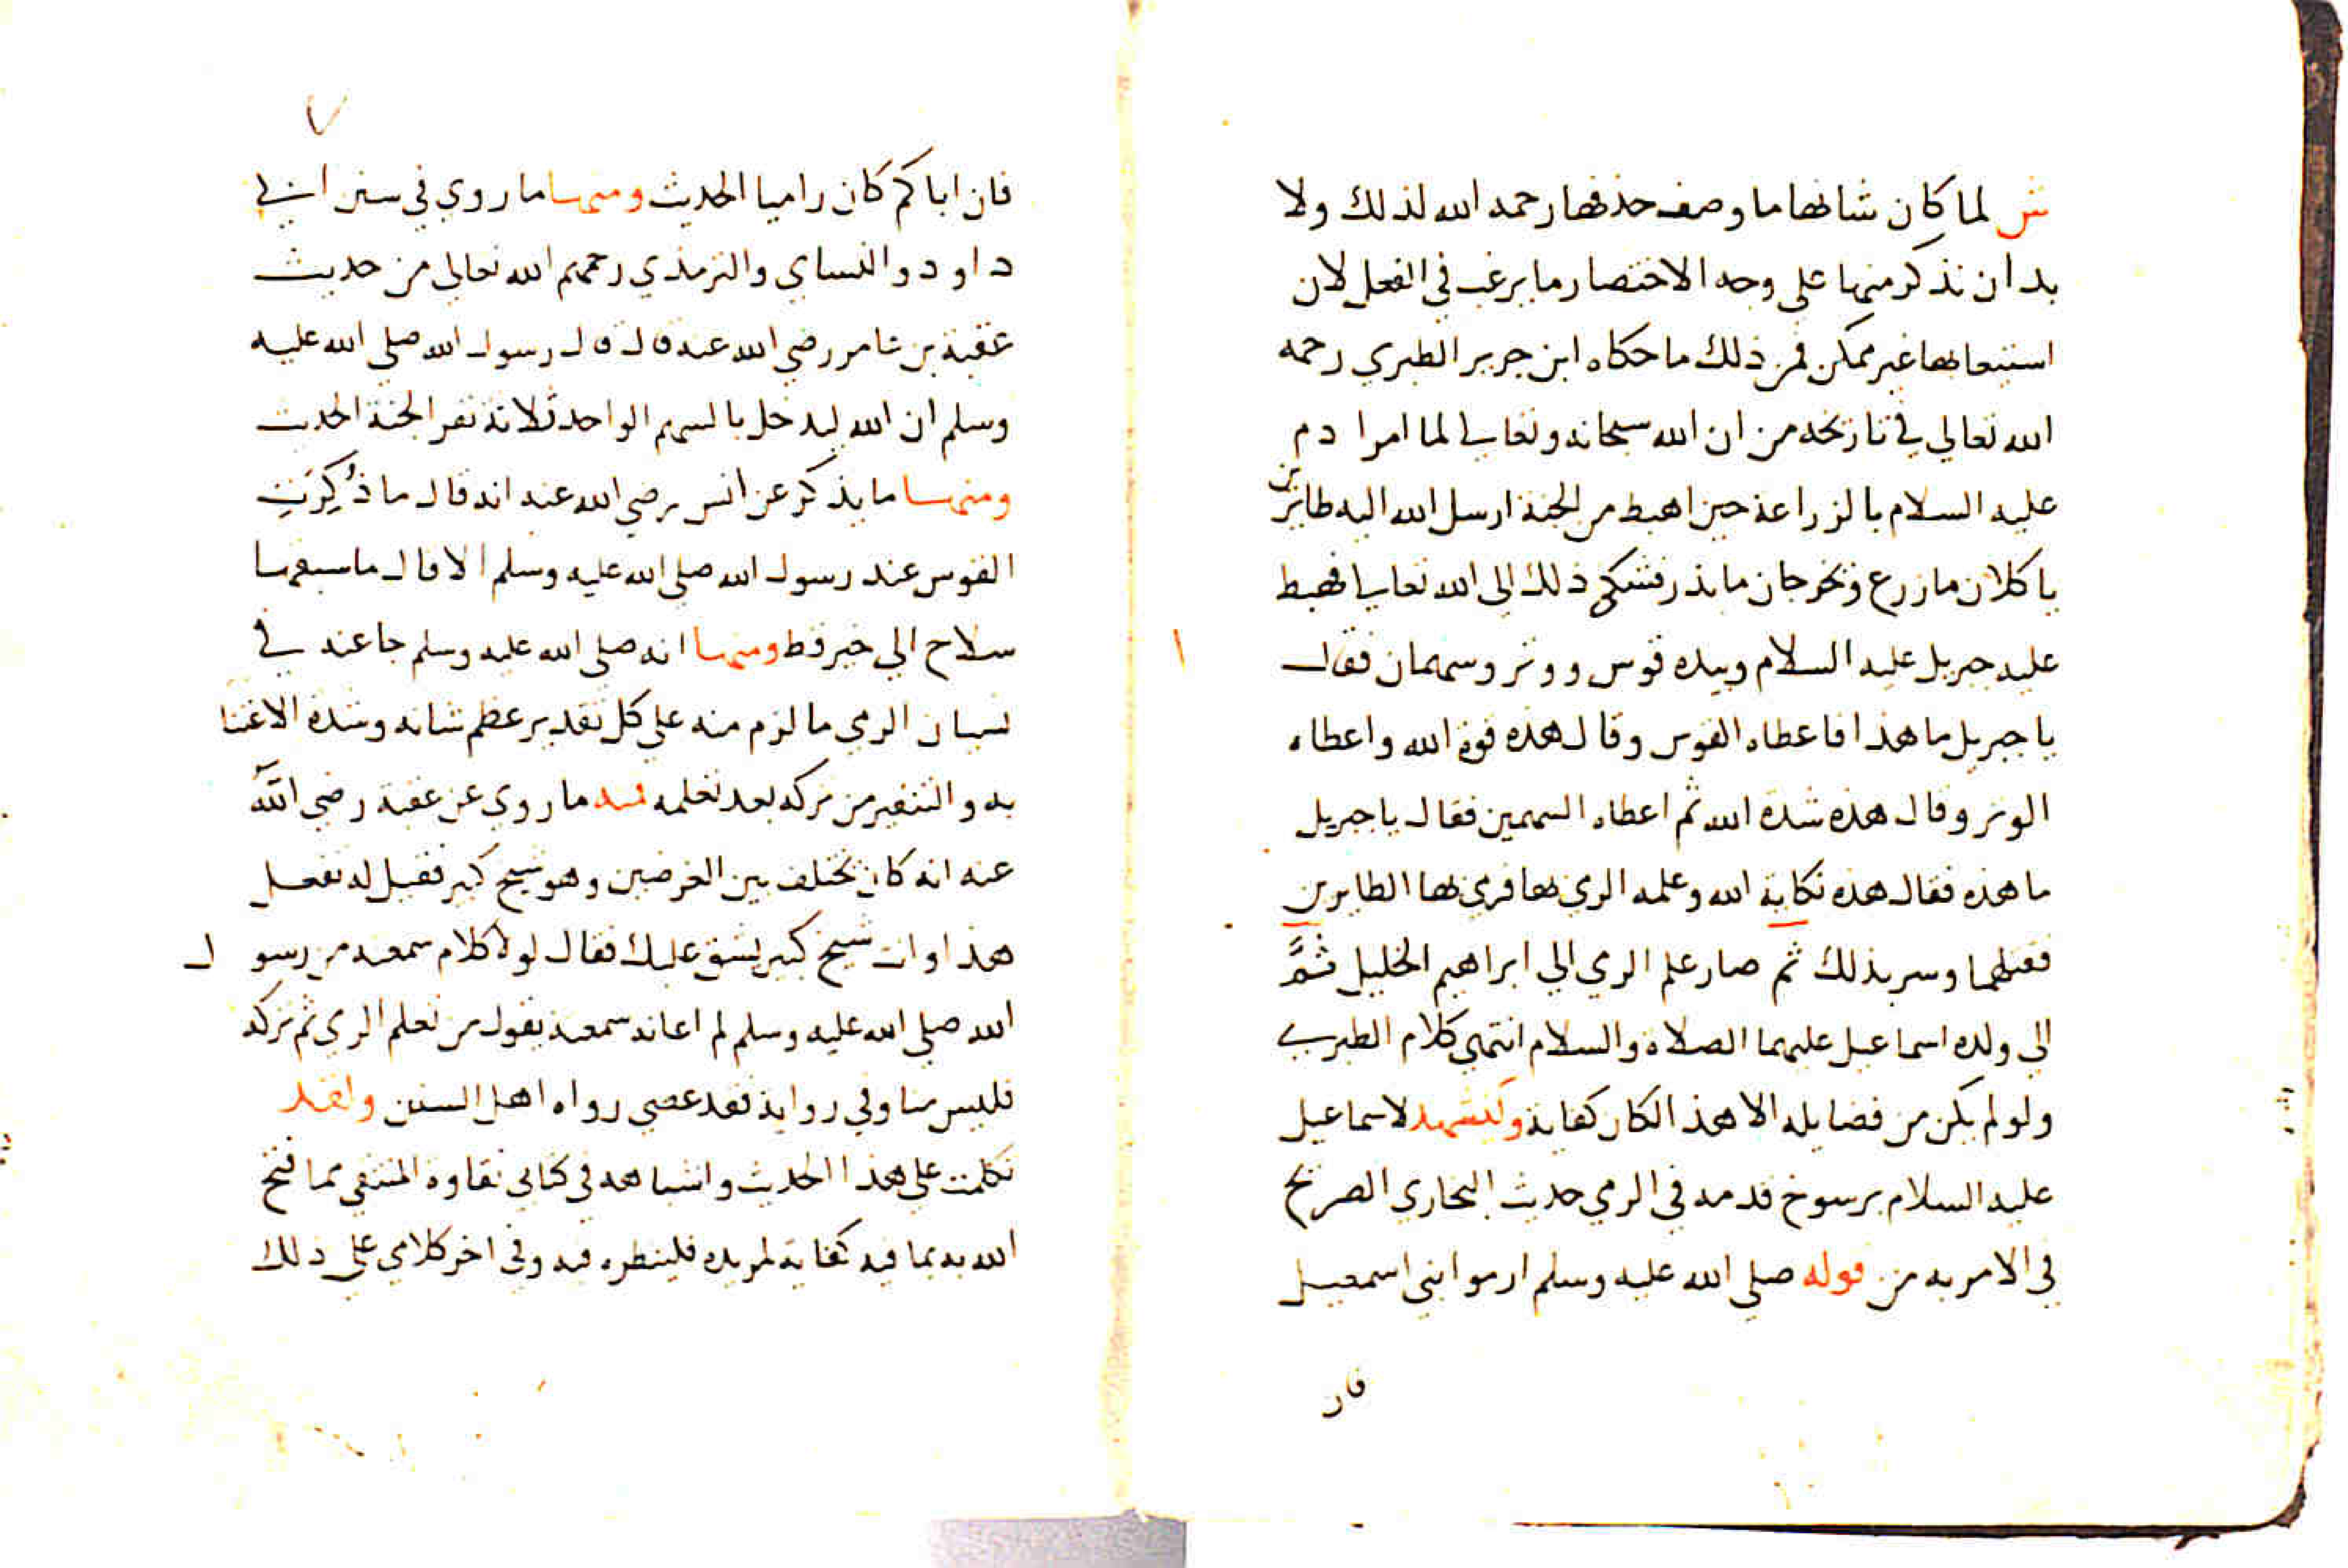 ش لما كان شانها ما وصف حذفها رحمه الله لذلك ولا
بد ان نذكر منها على وجه الاختصار ما يرغب في الفعل لان
استيعابها غير ممكن فمن ذلك ما حكاه ابن جرير الطبري رحمه
الله تعالي في تاريخه من ان الله سبحانه وتعالى لما امر ادم
عليه السلام بالزراعة حين اهبط من الجنة ارسل الله اليه طايرين
ياكلان ما زرع ويخرجان ما بذر فشكى ذلك الى الله تعالى فهبط
عليه جبريل عليه السلام وبيده قوس ووتر وسهمان فقال
يا جبريل ما هذا فاعطاه القوس وقال هذه قوة الله واعطاه
الوتر وقال هذه شدة الله ثم اعطاه السهمين فقال يا جبريل
ما هذه فقال هذه نكاية الله وعلمه الرمي بها فرمى بها الطايرين
فقتلهما وسر بذلك ثم صار علم الرمي الي ابراهيم الخليل ثم
الى ولده اسماعيل عليهما الصلاة والسلام انتهى كلام الطبري
ولو لم يكن من فضايله الا هذا لكان كفاية وليشهد لاسماعيل
عليه السلام برسوخ قدمه في الرمي حديث البخاري الصريح
في الامر به من قوله صلى الله عليه وسلم ارموا بني اسمعيل
فان
٧
فان اباكم كان راميا الحديث ومنها ما روي في سنن ابي
داود والنساي والترمذي رحمهم الله تعالى من حديث
عقبة بن عامر رضي الله عنه قال قال رسول الله صلى الله عليه
وسلم ان الله ليدخل بالسهم الواحد ثلاثة نفر الجنة الحديث
ومنها ما يذكر عن انس رضي الله عنه انه قال ما ذُكِرَتِ
القوس عند رسول الله صلى الله عليه وسلم الا قال ما سبقها
سلاح الي خير قط ومنها انه صلى الله عليه وسلم جا عنه في
نسيان الرمي ما لزم منه على كل تقدير عظم شانه وشدة الاعتنا
به والتنفير من تركه بعد تعلمه فمنه ما روي عن عقبة رضي الله
عنه انه كان يختلف بين الغرضين وهو شيخ كبير فقيل له تفعل
هذا وانت شيخ كبير يشق عليك فقال لولا كلام سمعته من رسول
الله صلى الله عليه وسلم لم اعانه سمعته يقول من تعلم الرمي ثم تركه
فليس منا وفي رواية فقد عصى رواه اهل السنن ولقد
تكلمت على هذا الحديث واشباهه في كتابي نقاوة المنتقى مما فتح
الله به بما فيه كفاية لمريده فلينظره فيه وفي اخر كلامي على ذلك